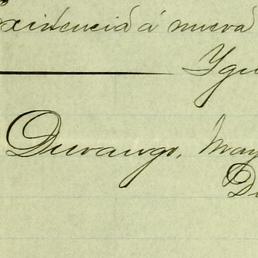 Existencia á nueva
Ygu
Durango, May
D